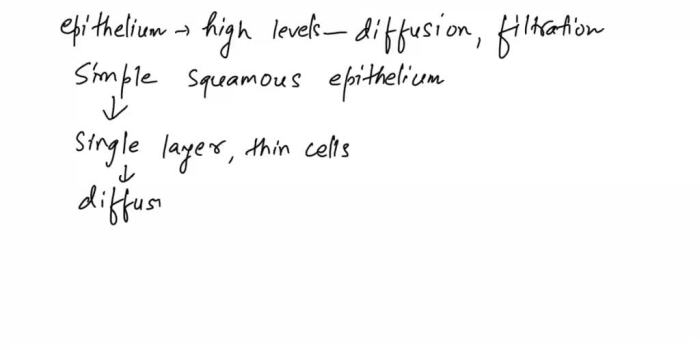 epithelium → high levels— diffusion, filtration
Simple squamous epithelium
↓
Single layer, thin cells
↓
diffusi